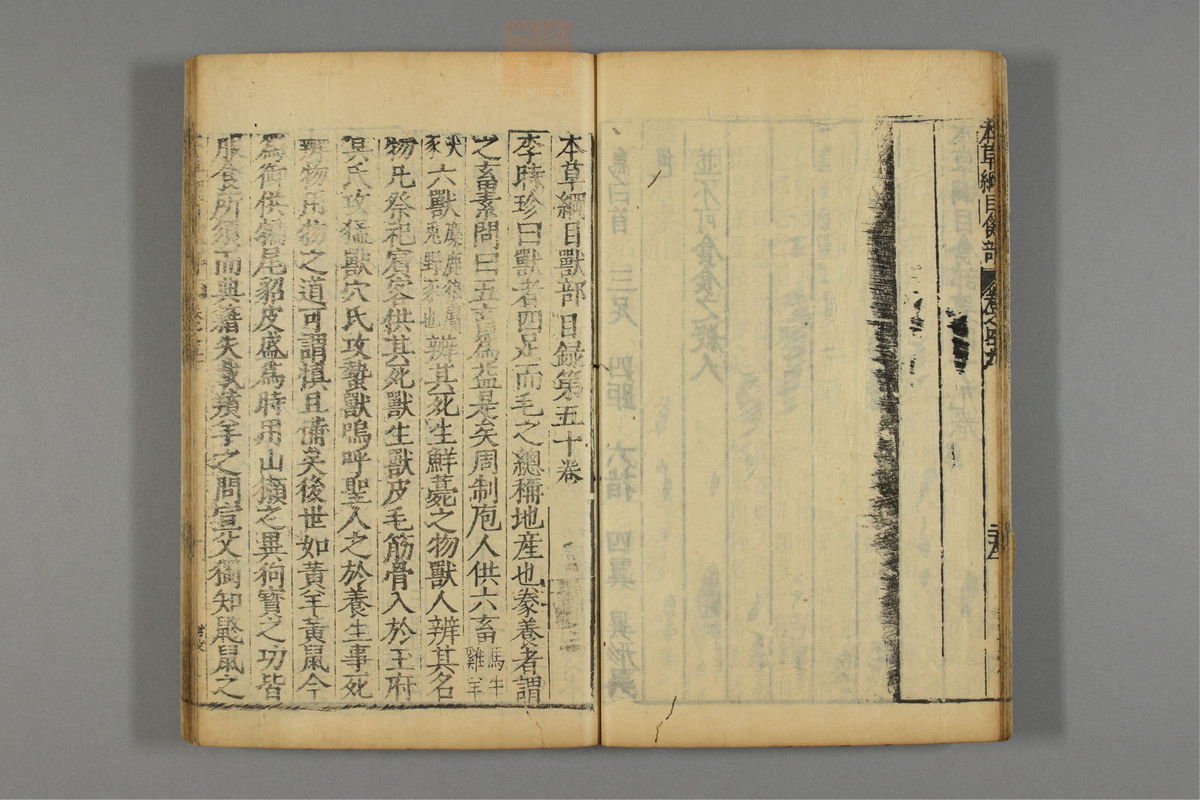 本草綱目禽部
本草綱目獸部目録第五十卷
李時珍曰獸者四足而毛之總稱地産也豢養者謂
之畜素問曰五畜為益是矣周制庖人供六畜馬牛雞羊
犬豕六獸麋鹿狼麕兎野豕也辨其死生鮮薧之物獸人辨其名
物凡祭祀賓客供其死獸生獸皮毛筋骨入於王府
冥氏攻猛獸穴氏攻蟄獸嗚呼聖人之於養生事死
辨物用物之道可謂慎且備矣後世如黃羊黃鼠今
為御供貂皮盛為時用山獺之異狗寶之功皆
服食所須而典籍失載羵羊之問宣父獨知鼠之